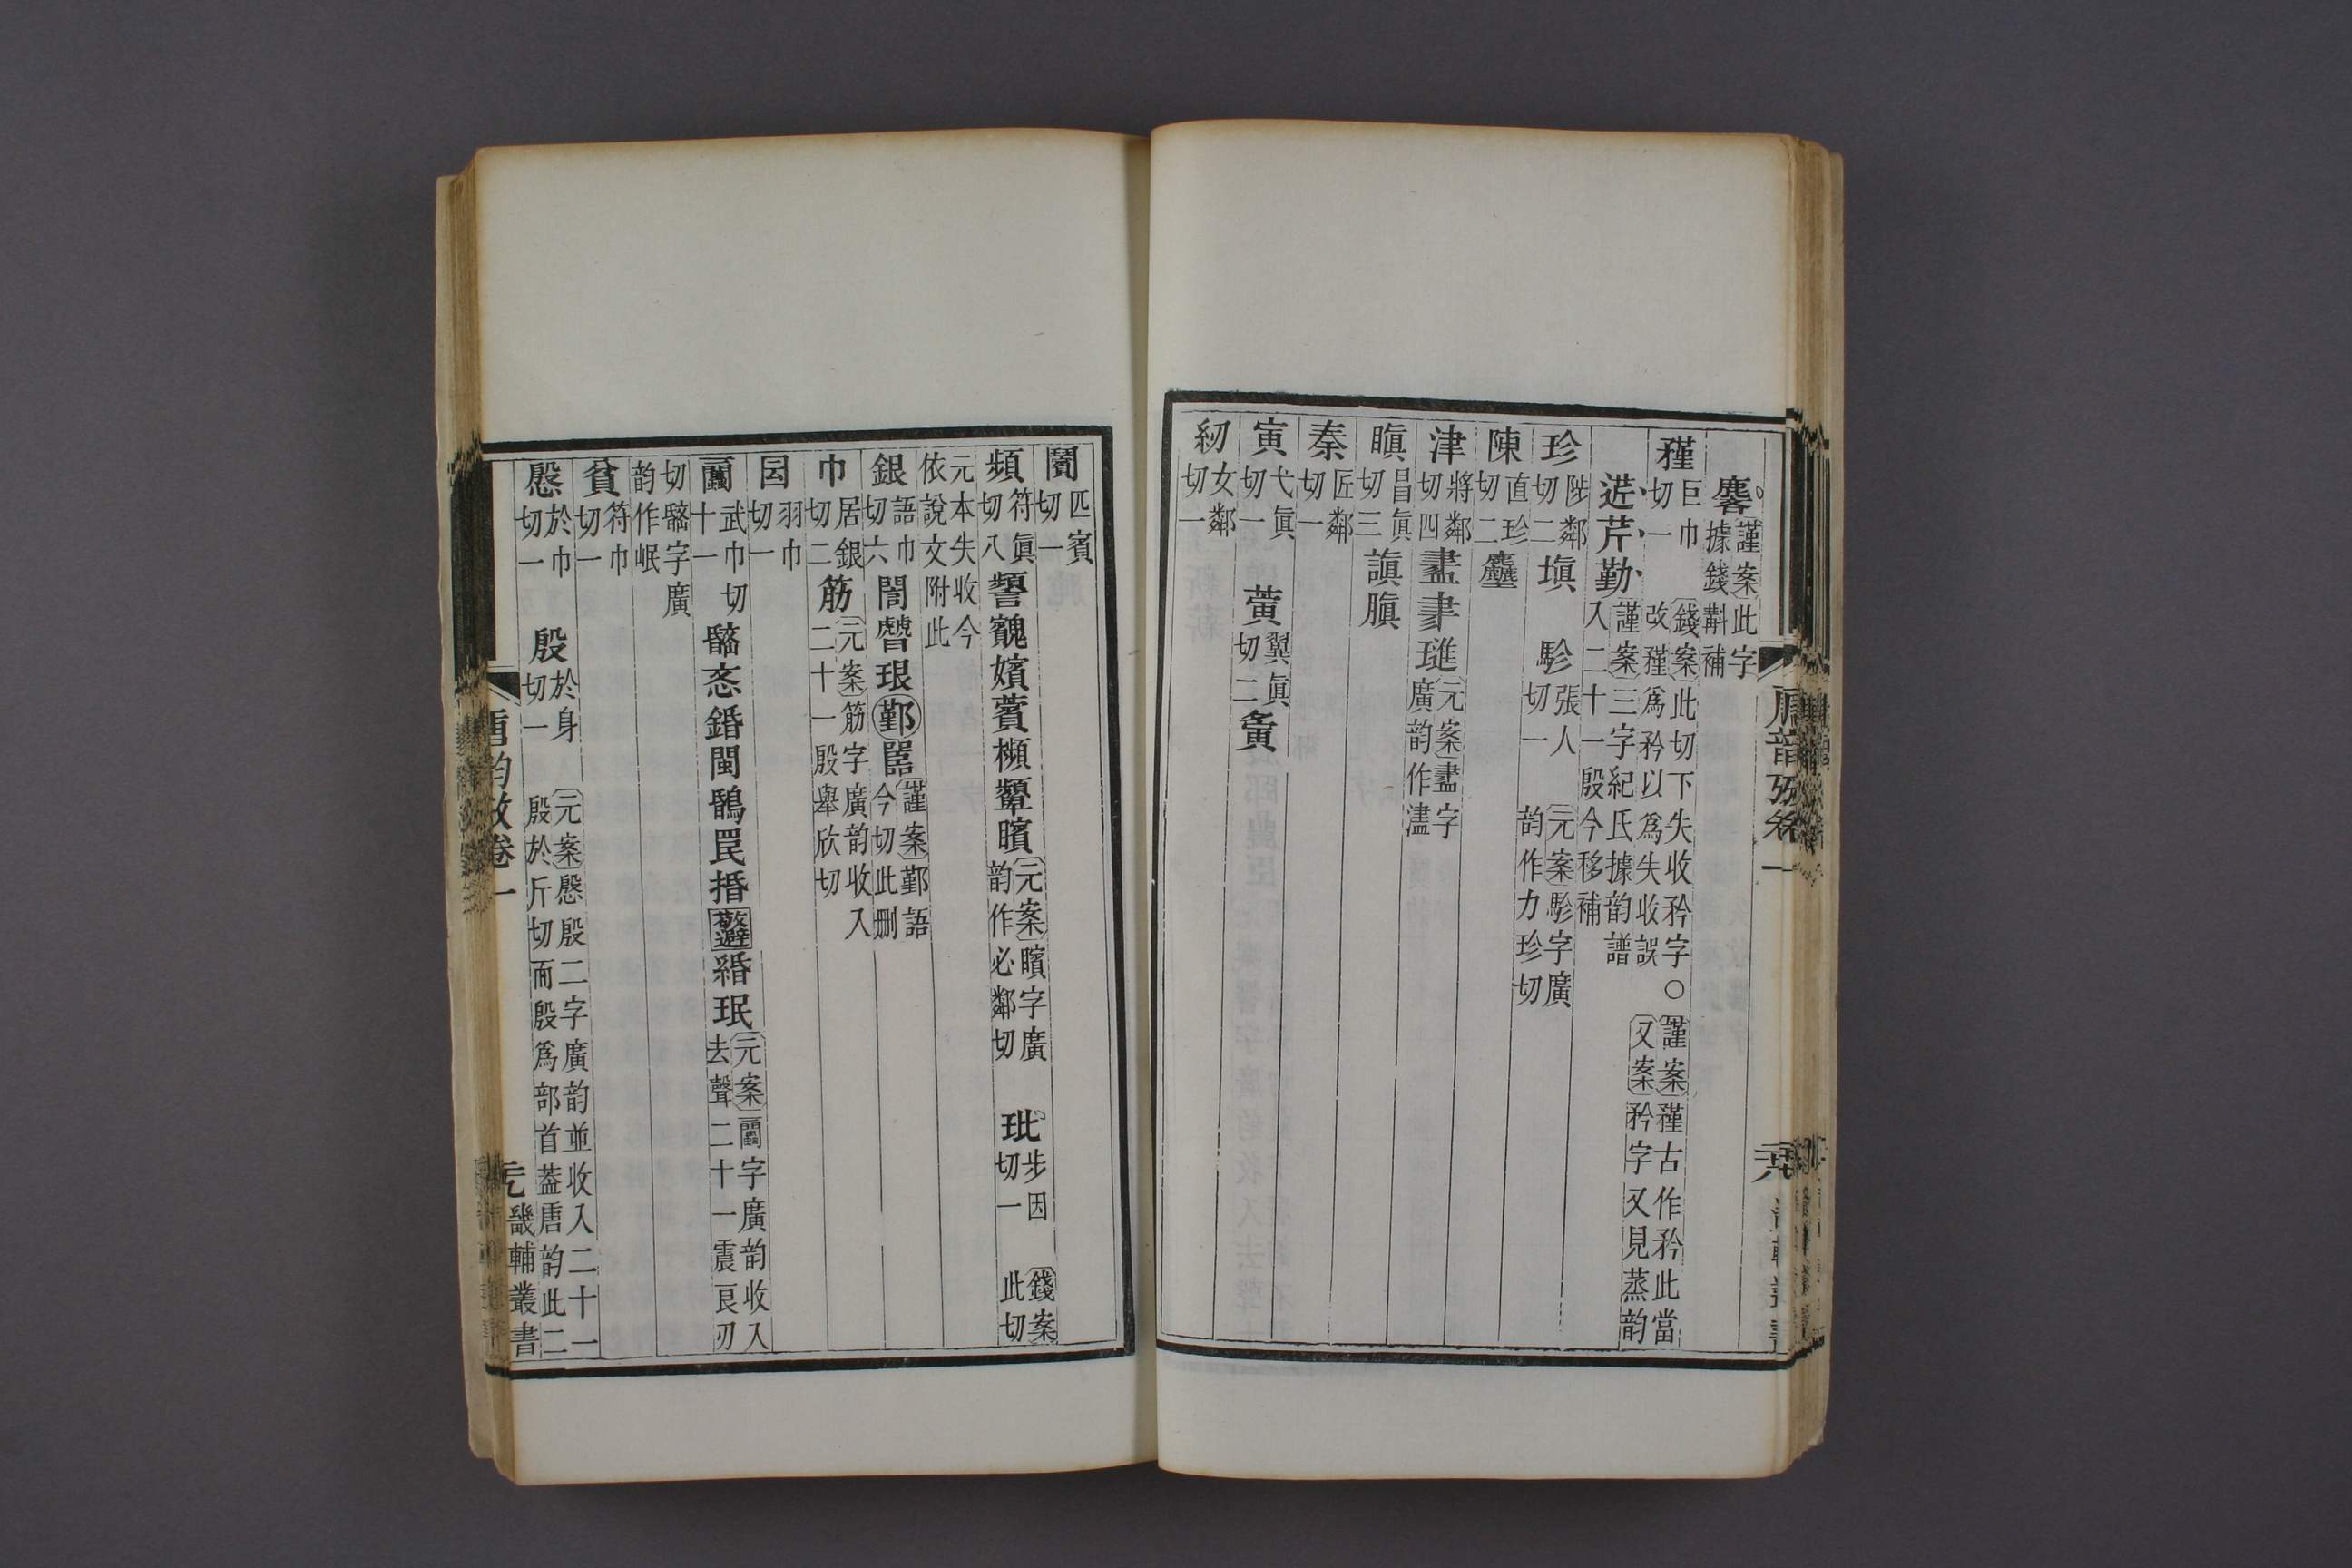 麏謹案此字據錢斠補
㹏巨巾切一錢案此切下失收矜字○改㹏爲矜以爲失收誤謹案㹏古作矜此當又案矜字又見蒸韵
芹勤謹案三字紀氏據韵譜入二十一殷今移補
珍陟鄰切二塡駗張人切一元案駗字廣韵作力珍切
陳直珍切二
津將鄰切四盡𦘔璡元案盡字廣韵作濜
瞋昌眞切三謓䐜
秦匠鄰切一
寅弋眞切一黄翼眞切二夤
紉女鄰切一
唐韵攷卷一
闠匹賓切一
頻符眞切八顰䚔嬪薲櫇㹂矉元案矉字廣韵作必鄰切玭步因切一錢案此切
元本失收今依說文附此
銀語巾切六誾䜣珢鄞嚚謹案鄞語今切此刪
巾居銀切二筋元案筋字廣韵收入二十一殷舉欣切
囩羽巾切一
䦎武巾切十一鬗忞錉閩鶥罠捪敬避緡珉元案䦎字廣韵收入去聲二十一震良刃
切鬗字廣韵作岷
貧符巾切一
慇於巾切一殷於身切一元案慇殷二字廣韵並收入二十一殷於斤切而殷爲部首蓋唐韵此二
唐韵攷卷一
畿輔叢書